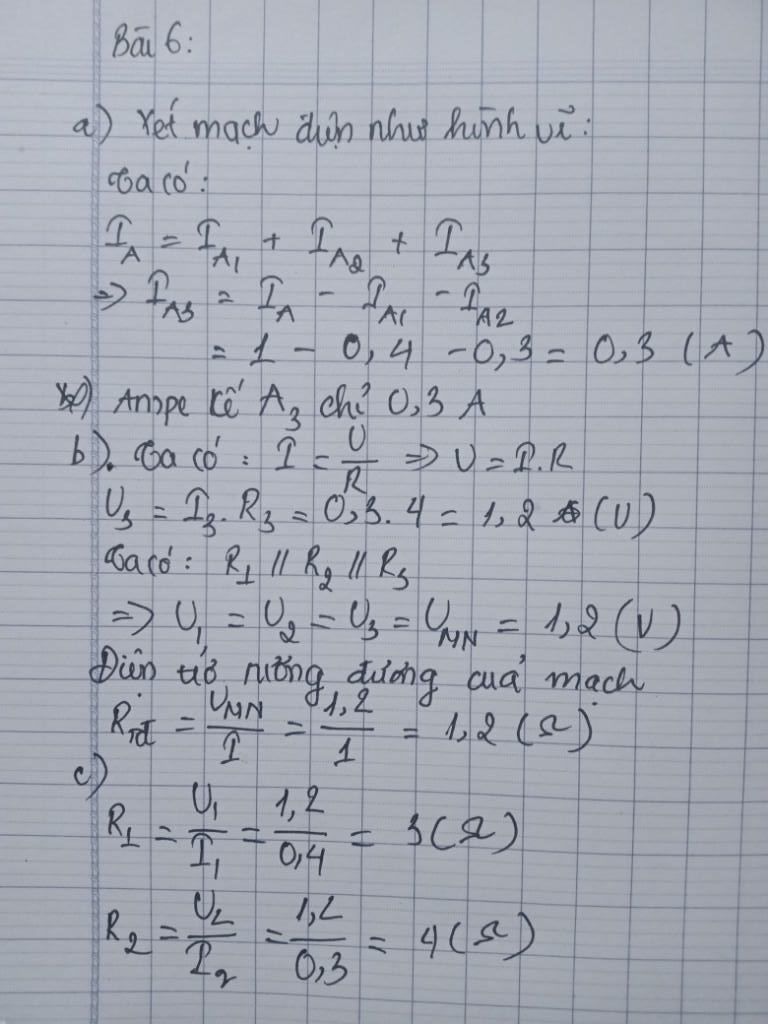 Bài 6:
a) Xét mạch điện như hình vẽ:
Ta có:
I_A = I_A1 + I_A2 + I_A3
=> I_A3 = I_A - I_A1 - I_A2
= 1 - 0,4 - 0,3 = 0,3 (A)
Ampe kế A_3 chỉ 0,3 A
b). Ta có: I = U/R => U = I.R
U_3 = I_3. R_3 = 0,3. 4 = 1,2 (V)
Ta có: R_1 // R_2 // R_3
=> U_1 = U_2 = U_3 = U_MN = 1,2 (V)
Điện trở tương đương của mạch
R_tđ = U_MN/I = 1,2/1 = 1,2 (Ω)
c)
R_1 = U_1/I_1 = 1,2/0,4 = 3 (Ω)
R_2 = U_2/I_2 = 1,2/0,3 = 4 (Ω)